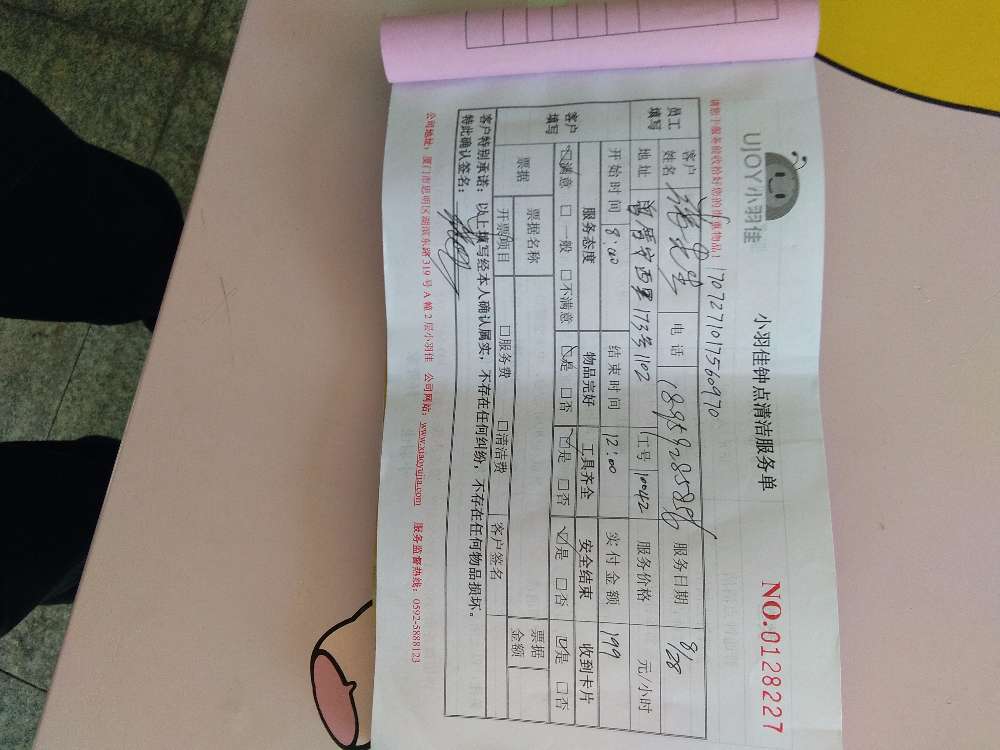 UJOY小羽佳
小羽佳钟点清洁服务单
NO.0128227
请您于服务前收拾好您的贵重物品！
1707271017560970
员工填写 客户姓名 先生 电话 服务日期 8/28
地址 西里173号1102 工号 10042 服务价格 元/小时
开始时间 8:00 结束时间 12:00 实付金额 199
客户填写 服务态度 物品完好 工具齐全 安全结束 收到卡片
☑满意 □一般 □不满意 ☑是 □否 ☑是 □否 ☑是 □否 ☑是 □否
票据 票据名称 票据金额
开票项目 □服务费 □清洁费 客户签名
客户特别承诺：以上填写经本人确认属实，不存在任何纠纷，不存在任何物品损坏。
特此确认签名：
公司地址：厦门市思明区湖滨东路319号A幢2层小羽佳 公司网站：www.xiaoyujia.com 服务监督热线：0592-5888123